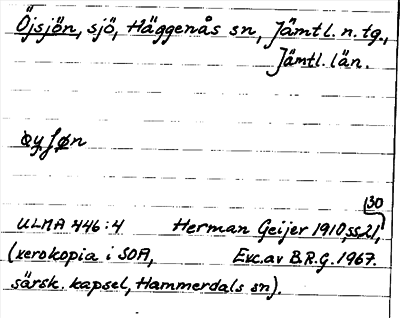 Öjsjön, sjö, Häggenås sn, Jämtl. n. tg.,
Jämtl. län.
øyſøn
30
ULMA 446:4 Herman Geijer 1910, ss 21,
(xerokopia i SOA, Exc. av B.R.G. 1967.
särsk. kapsel, Hammerdals sn).